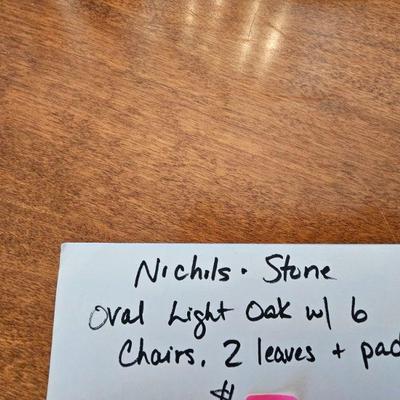 Nichils. Stone
Oval Light Oak w/ 6
Chairs, 2 leaves + pad
$